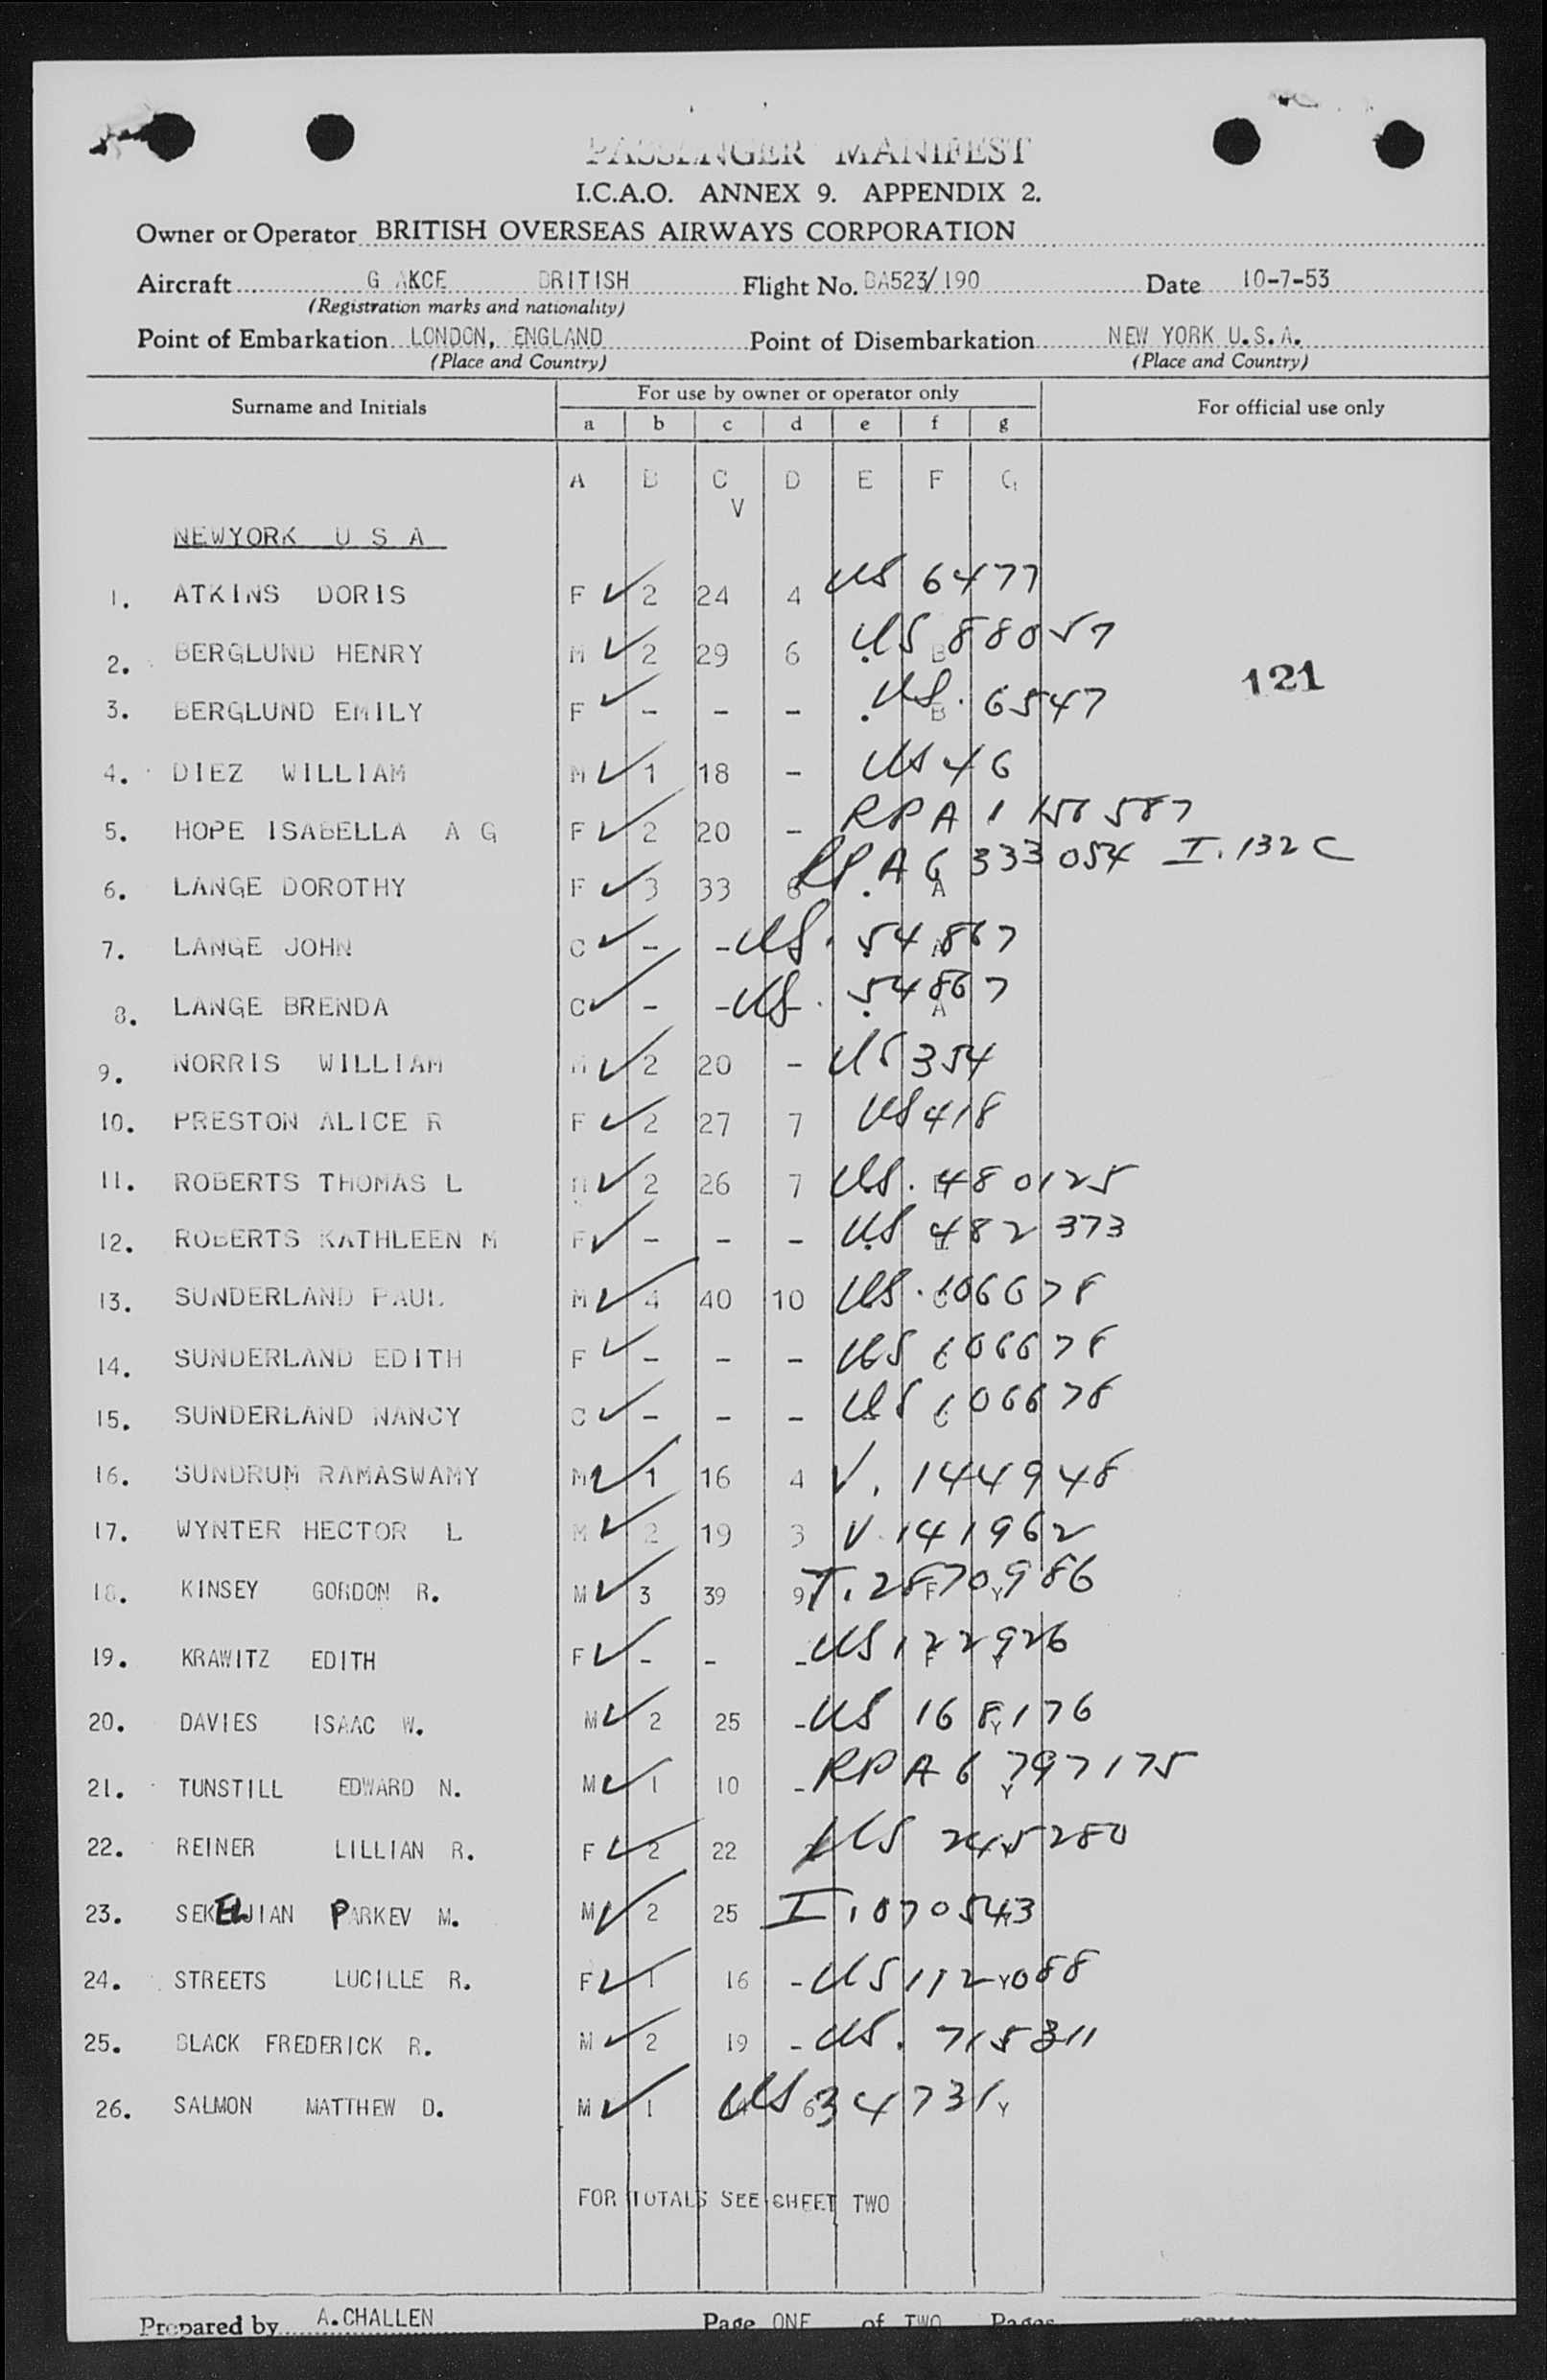 PASSENGER MANIFEST
I.C.A.O. ANNEX 9. APPENDIX 2.
Owner or Operator BRITISH OVERSEAS AIRWAYS CORPORATION
Aircraft G AKCE BRITISH Flight No. BA523/190 Date 10-7-53
(Registration marks and nationality)
Point of Embarkation LONDON, ENGLAND Point of Disembarkation NEW YORK U.S.A.
(Place and Country) (Place and Country)
Surname and Initials For use by owner or operator only For official use only
a b c d e f g
A B C D E F G
V
NEWYORK U S A
1. ATKINS DORIS F ✓ 2 24 4 US 6477
2. BERGLUND HENRY M ✓ 2 29 6 US B 88057
121
3. BERGLUND EMILY F ✓ - - - US. B 6547
4. DIEZ WILLIAM M ✓ 1 18 - US 46
5. HOPE ISABELLA A G F ✓ 2 20 - RPA 1 156587
6. LANGE DOROTHY F ✓ 3 33 6 RPA 6 333054 I.132C A
7. LANGE JOHN C ✓ - - US. 54867
8. LANGE BRENDA C ✓ - - - US. 54867 A
9. NORRIS WILLIAM M ✓ 2 20 - US 354
10. PRESTON ALICE R F ✓ 2 27 7 US 418
11. ROBERTS THOMAS L M ✓ 2 26 7 US. 480125
12. ROBERTS KATHLEEN M F ✓ - - - US 482373
13. SUNDERLAND PAUL M ✓ 4 40 10 US. 106678
14. SUNDERLAND EDITH F ✓ - - - US 106678
15. SUNDERLAND NANCY C ✓ - - - US 106678
16. SUNDRUM RAMASWAMY M ✓ 1 16 4 V. 144948
17. WYNTER HECTOR L M ✓ 2 19 3 V. 141962
18. KINSEY GORDON R. M ✓ 3 39 9 T. 2870986 F Y
19. KRAWITZ EDITH F ✓ - - - US 122926 F Y
20. DAVIES ISAAC W. M ✓ 2 25 - US 168176 Y
21. TUNSTILL EDWARD N. M ✓ 1 10 - RPA 6 797175 Y
22. REINER LILLIAN R. F ✓ 2 22 US 245280
23. SEKELJIAN PARKEV M. M ✓ 2 25 I.070543
24. STREETS LUCILLE R. F ✓ 1 16 - US 112088 Y
25. BLACK FREDERICK R. M ✓ 2 19 - US. 715311
26. SALMON MATTHEW D. M ✓ 1 6 US 34731 Y
FOR TOTALS SEE SHEET TWO
Prepared by A.CHALLEN Page ONE of TWO Pages